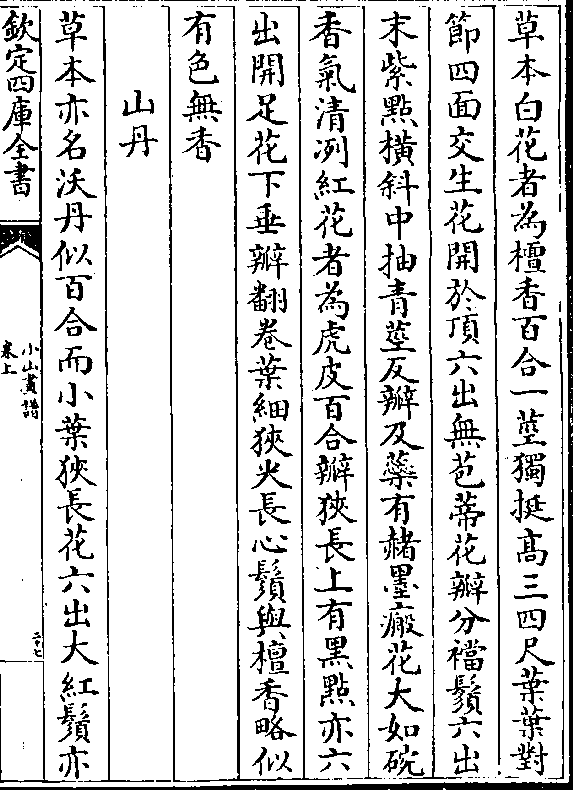 草本白花者為檀香百合一莖獨挺高三四尺葉葉對
節四面交生花開於頂六出無苞蒂花瓣分襠鬚六出
末紫點橫斜中抽青莖反瓣及藥有赭墨瘢花大如碗
香氣清冽紅花者為虎皮百合瓣狹長上有黑點亦六
出開足花下垂瓣翻卷葉細狹火長心鬚與檀香略似
有色無香
山丹
草本亦名沃丹似百合而小葉狹長花六出大紅鬚亦
欽定四庫全書
小山畫譜
卷上
二十七